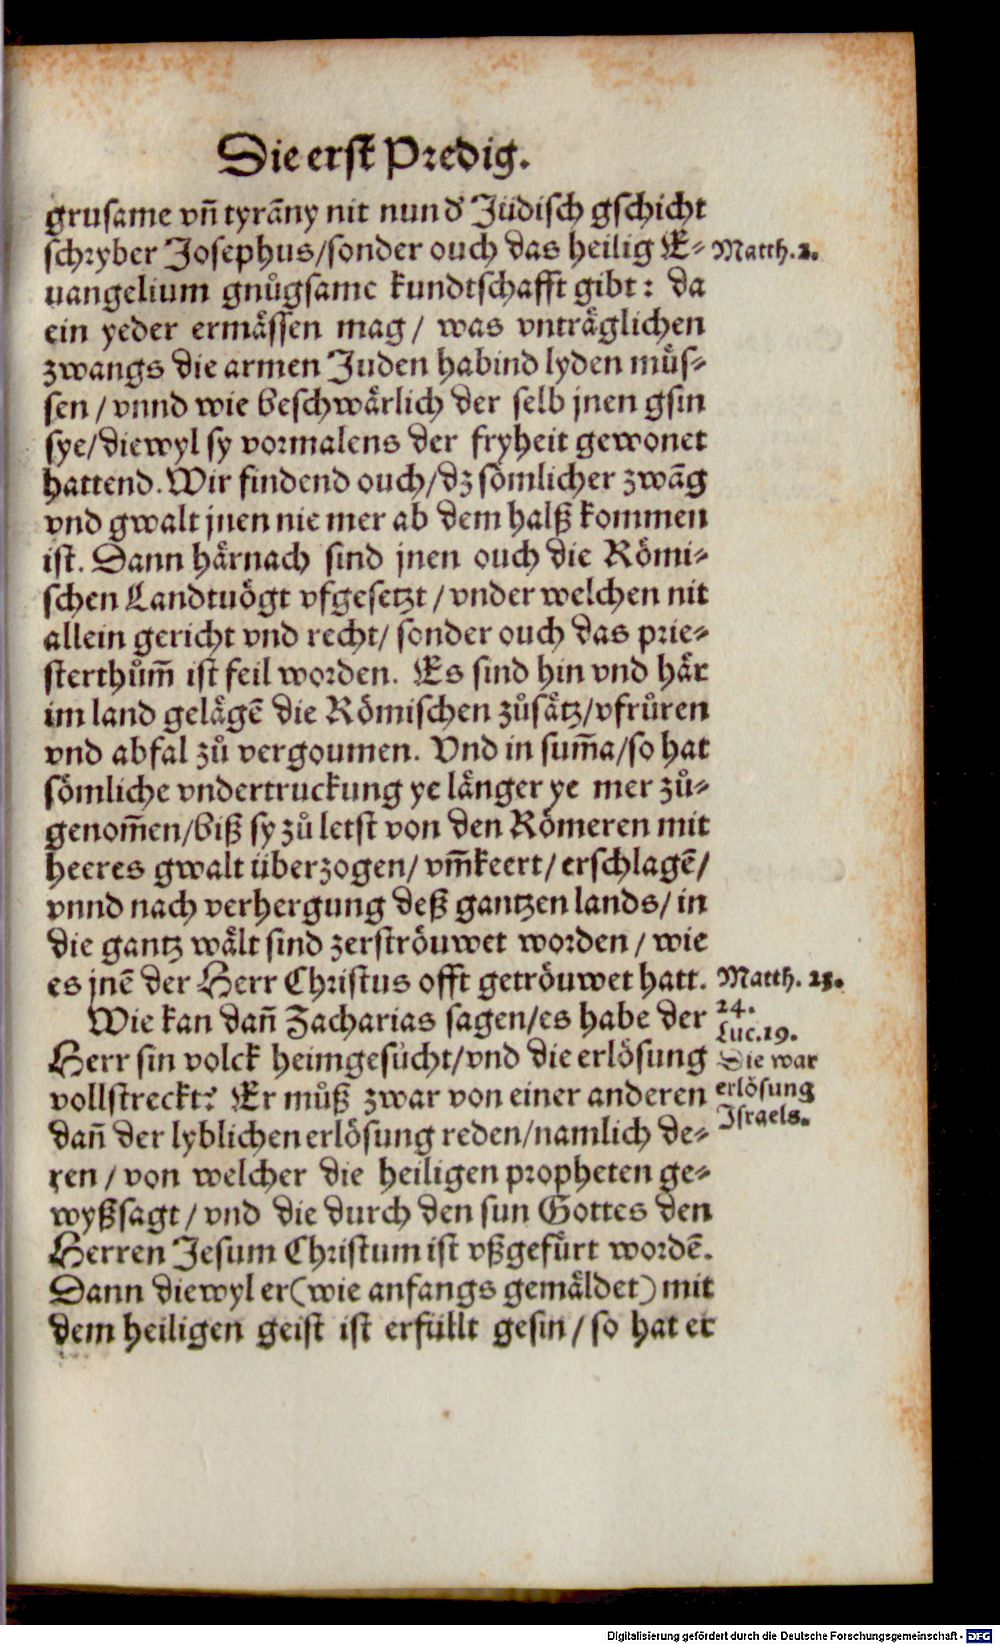 Die erst Predig.
grusame vñ tyrãny nit nun d' Jüdisch gschicht
schryber Josephus/sonder ouch das heilig E-
uangelium gnůgsame kundtschafft gibt: da
ein yeder ermässen mag/ was vnträglichen
zwangs die armen Juden habind lyden müs-
sen/ vnnd wie beschwärlich der selb jnen gsin
sye/diewyl sy vormalens der fryheit gewonet
hattend. Wir findend ouch/dz sömlicher zwãg
vnd gwalt jnen nie mer ab dem halß kommen
ist. Dann härnach sind jnen ouch die Römi-
schen Landtuögt vfgesetzt/ vnder welchen nit
allein gericht vnd recht/ sonder ouch das prie-
sterthům̃ ist feil worden. Es sind hin vnd här
im land gelägẽ die Römischen zůsätz/vfrůren
vnd abfal zů vergoumen. Vnd in sum̃a/so hat
sömliche vndertruckung ye länger ye mer zů-
genom̃en/biß sy zů letst von den Römeren mit
heeres gwalt überzogen/ vm̃keert/ erschlagẽ/
vnnd nach verhergung deß gantzen lands/ in
die gantz wält sind zerströuwet worden/ wie
es jnẽ der Herr Christus offt getröuwet hatt.
Wie kan dañ Zacharias sagen/es habe der
Herr sin volck heimgesůcht/vnd die erlösung
vollstreckt? Er můß zwar von einer anderen
dañ der lyblichen erlösung reden/namlich de-
ren/ von welcher die heiligen propheten ge-
wyßsagt/ vnd die durch den sun Gottes den
Herren Jesum Christum ist vßgefürt wordẽ.
Dann diewyl er (wie anfangs gemäldet) mit
dem heiligen geist ist erfüllt gesin/ so hat er
Matth. 2.
Matth. 23.
24.
Luc. 19.
Die war
erlösung
Israels.
Digitalisierung gefördert durch die Deutsche Forschungsgemeinschaft - DFG